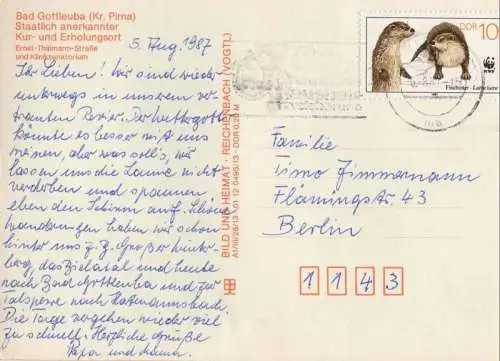 Bad Gottleuba (Kr. Pirna)
Staatlich anerkannter
Kur- und Erholungsort
Ernst-Thälmann-Straße
und Kliniksanatorium
5. Aug. 1987
Ihr Lieben! Wir sind wieder
unterwegs in unserem ver-
trauten Revier. Der Wettergott
könnte es besser mit uns
meinen, aber was soll's, wir
lassen uns die Laune nicht
verderben und spannen
eben den Schirm auf. Schöne
Wanderungen haben wir schon
hinter uns z. B. Großer Winter-
berg, das Bielatal und heute
nach Bad Gottleuba und zur
Talsperre nach
Die Tage vergehen wieder viel
zu schnell. Herzliche Grüße
Papa und
BILD UND HEIMAT REICHENBACH (VOGTL)
A1/III/26/13 01 12 0449/13 DDR 0,20 M
DDR 10
WWF
Fischotter - Lutra lutra
Familie
Timo Zimmermann
Flämingstr. 43
Berlin
1 1 4 3